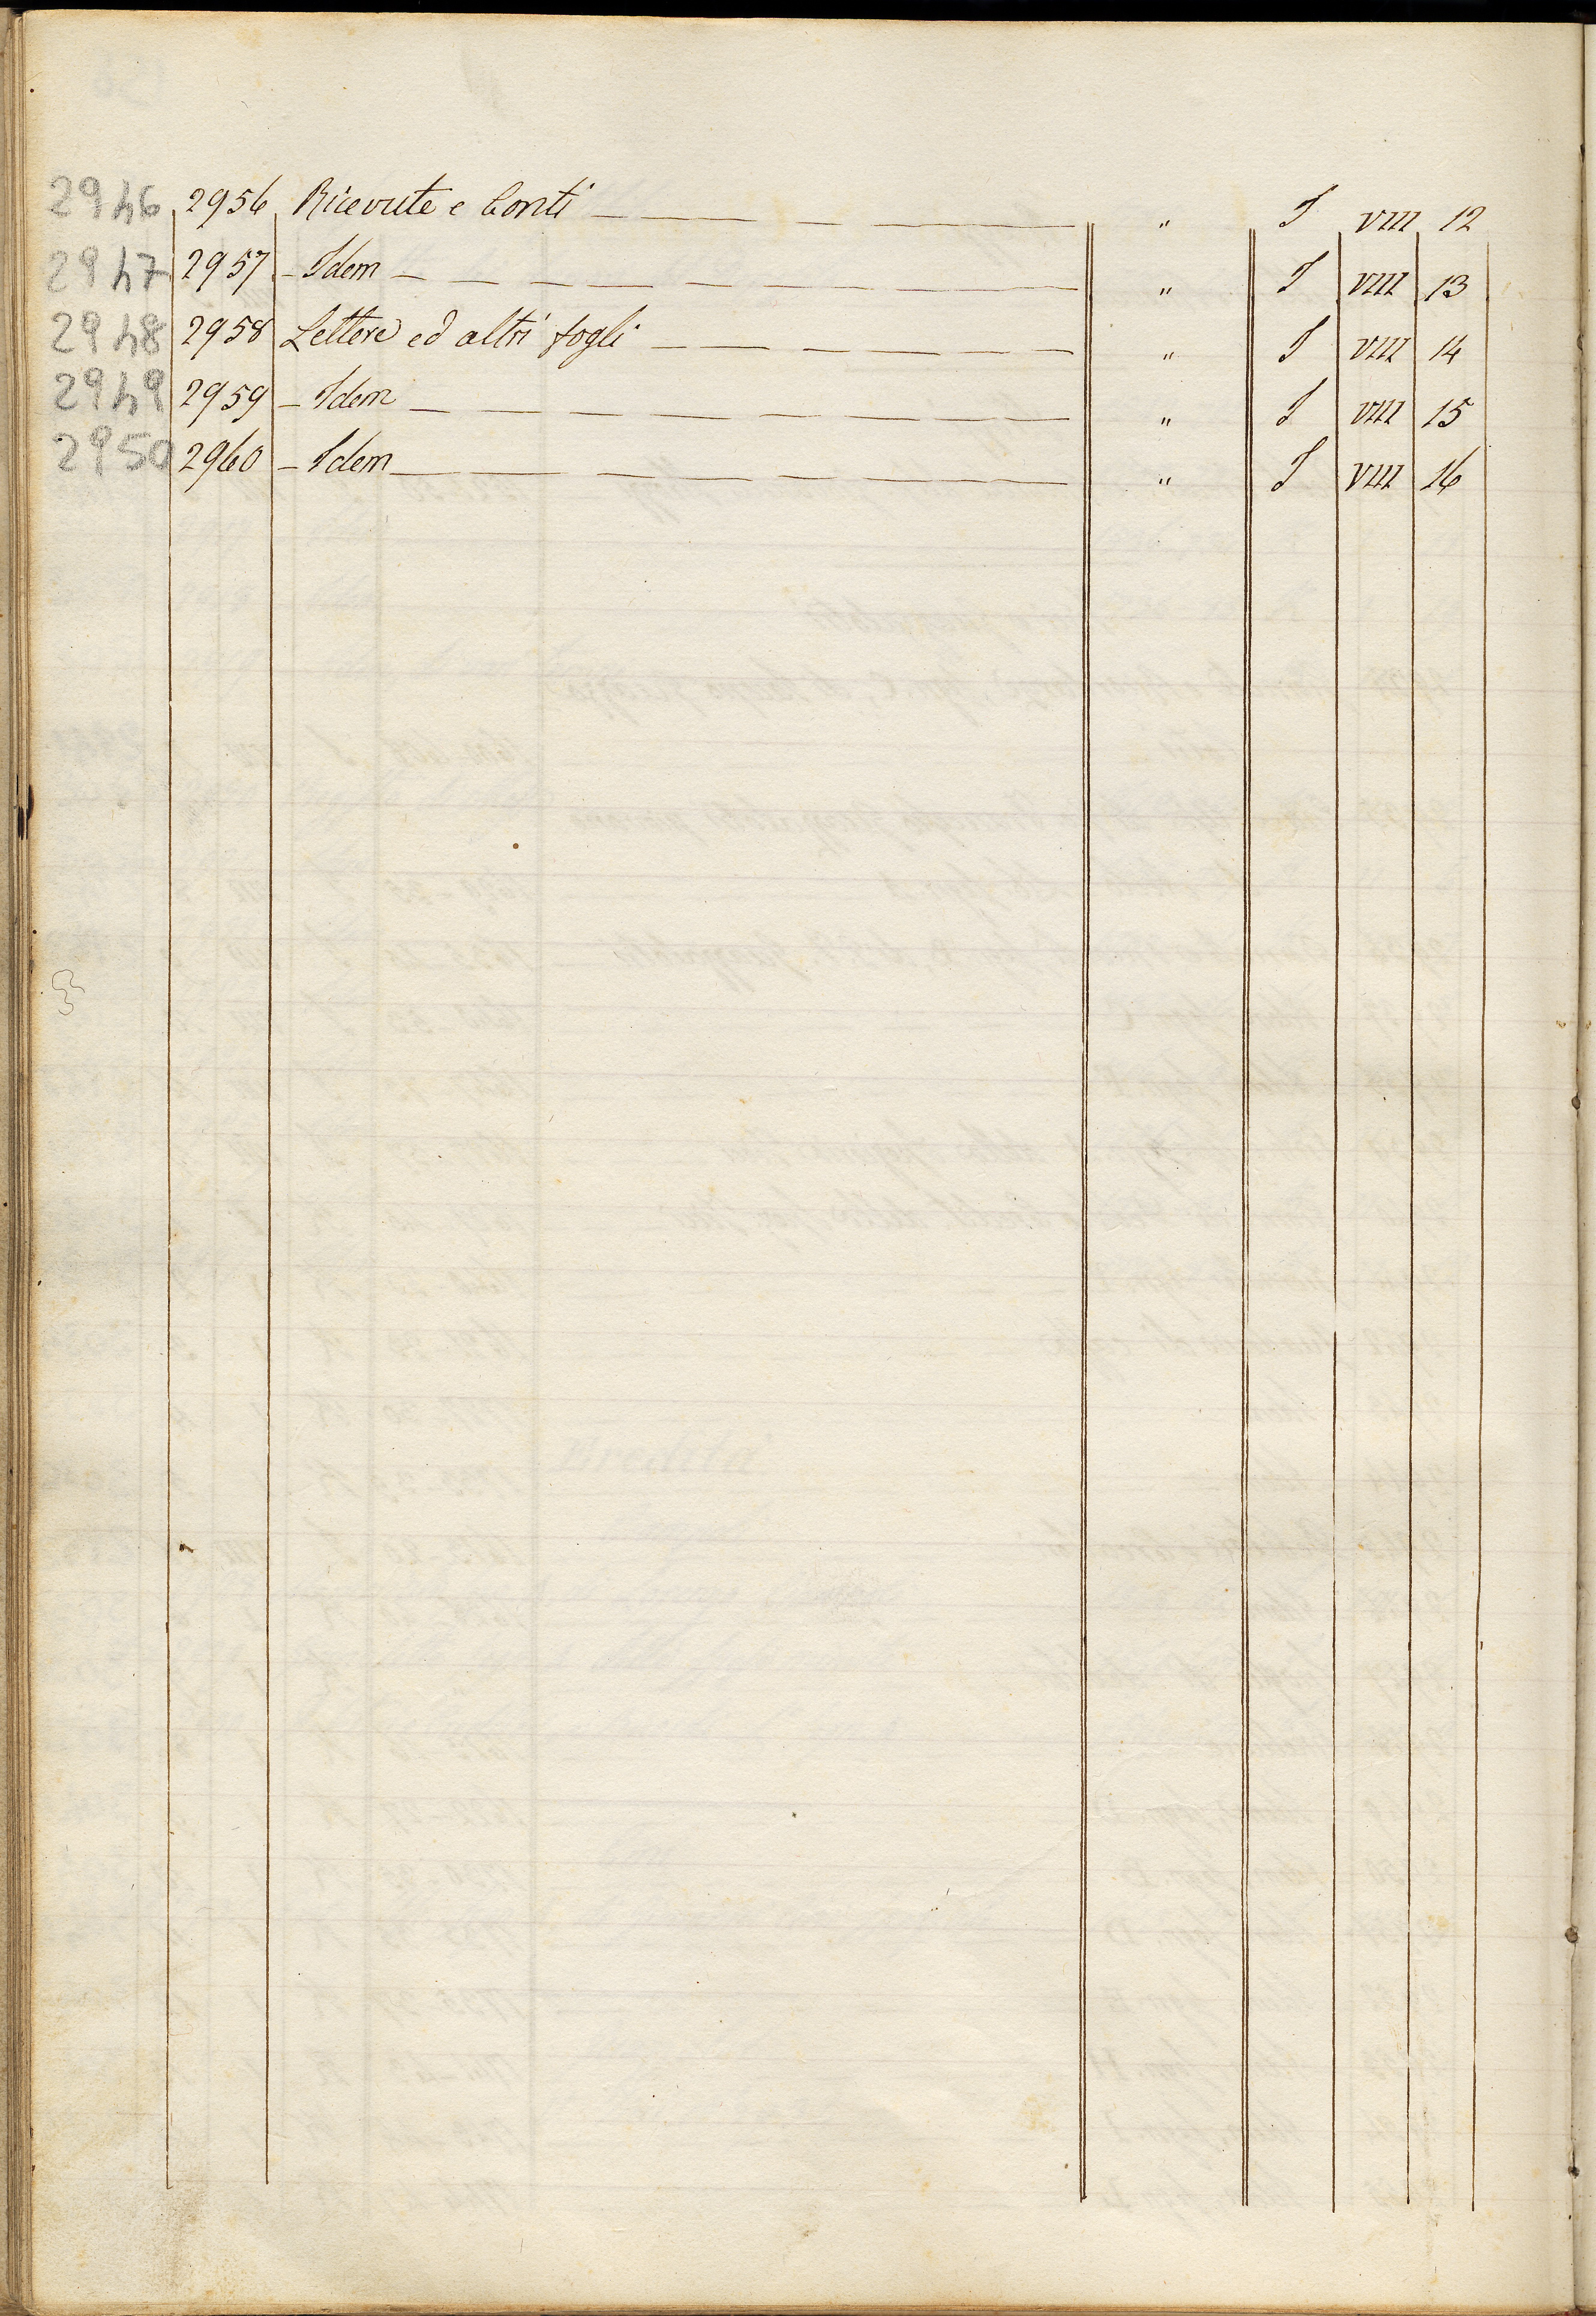 2946 2956 Ricevute e Conti — — — — — — " I VIII 12
2947 2957 – Idem — — — — — — — — — " I VIII 13
2948 2958 Lettere ed altri fogli — — — — — — " I VIII 14
2949 2959 – Idem — — — — — — — — — " I VIII 15
2950 2960 – Idem — — — — — — — — " I VIII 16